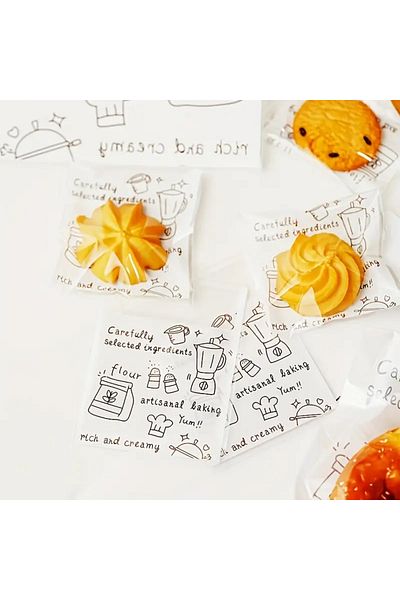 rich and creamy
Carefully
selected ingredients
rich and creamy
Carefully
selected ingredients
Carefully
selected ingredients
flour
artisanal baking
Yum!!
rich and creamy
artisanal baking
Yum!!
and creamy
selected